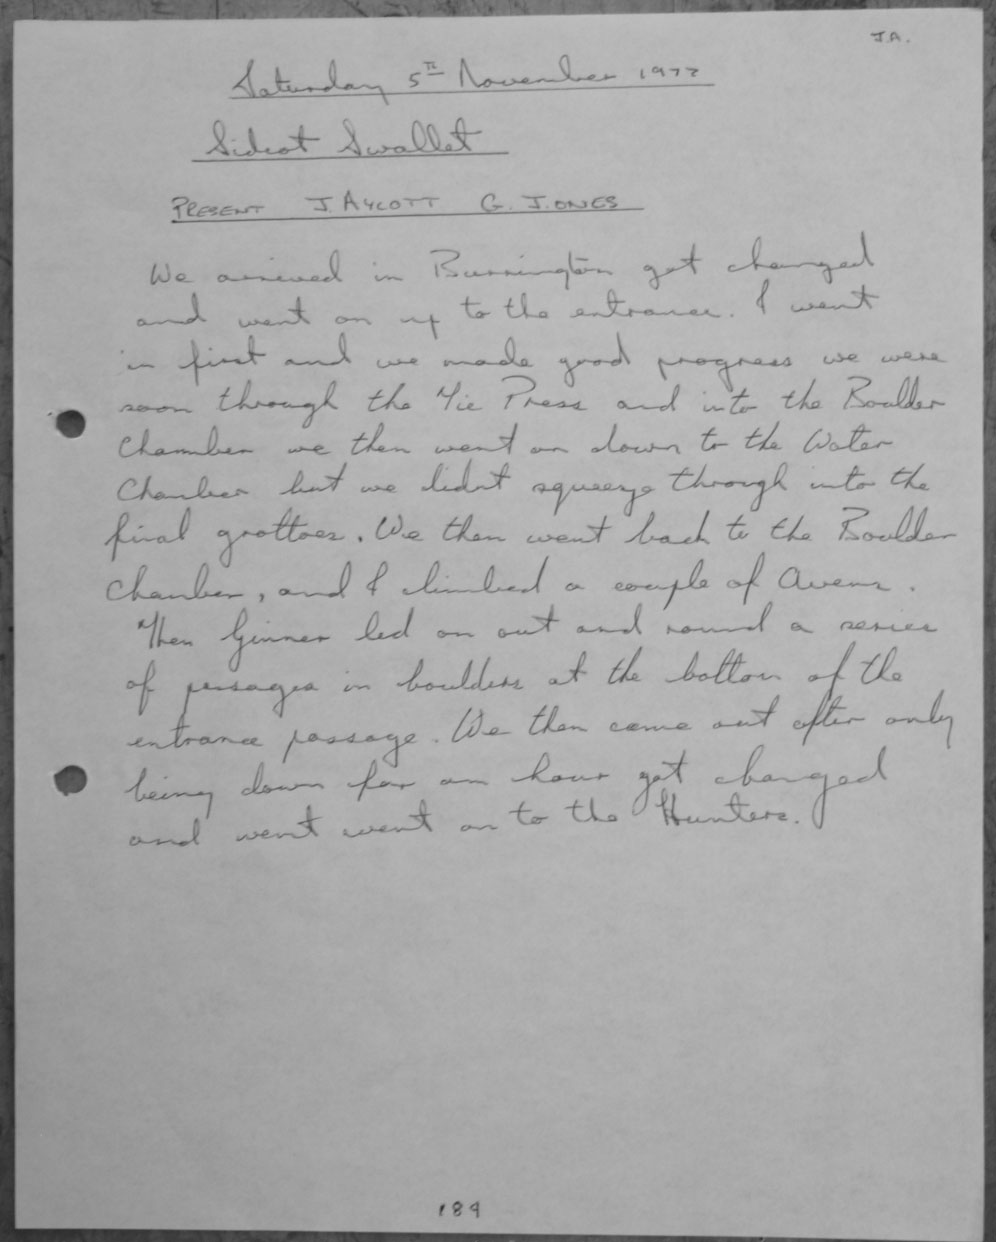 J.A.
Saturday 5th November 1977
Sidcot Swallet
PRESENT J. AYCOTT G. JONES
We arrived in Burrington got changed
and went on up to the entrance. I went
in first and we made good progress we were
soon through the Tie Press and into the Boulder
Chamber we then went on down to the Water
Chamber but we didnt squeeze through into the
final grottoes. We then went back to the Boulder
Chamber, and I climbed a couple of Avens.
Then Ginner led on out and round a series
of passages in boulders at the bottom of the
entrance passage. We then came out after only
being down for an hour got changed
and went went on to the Hunters.
189